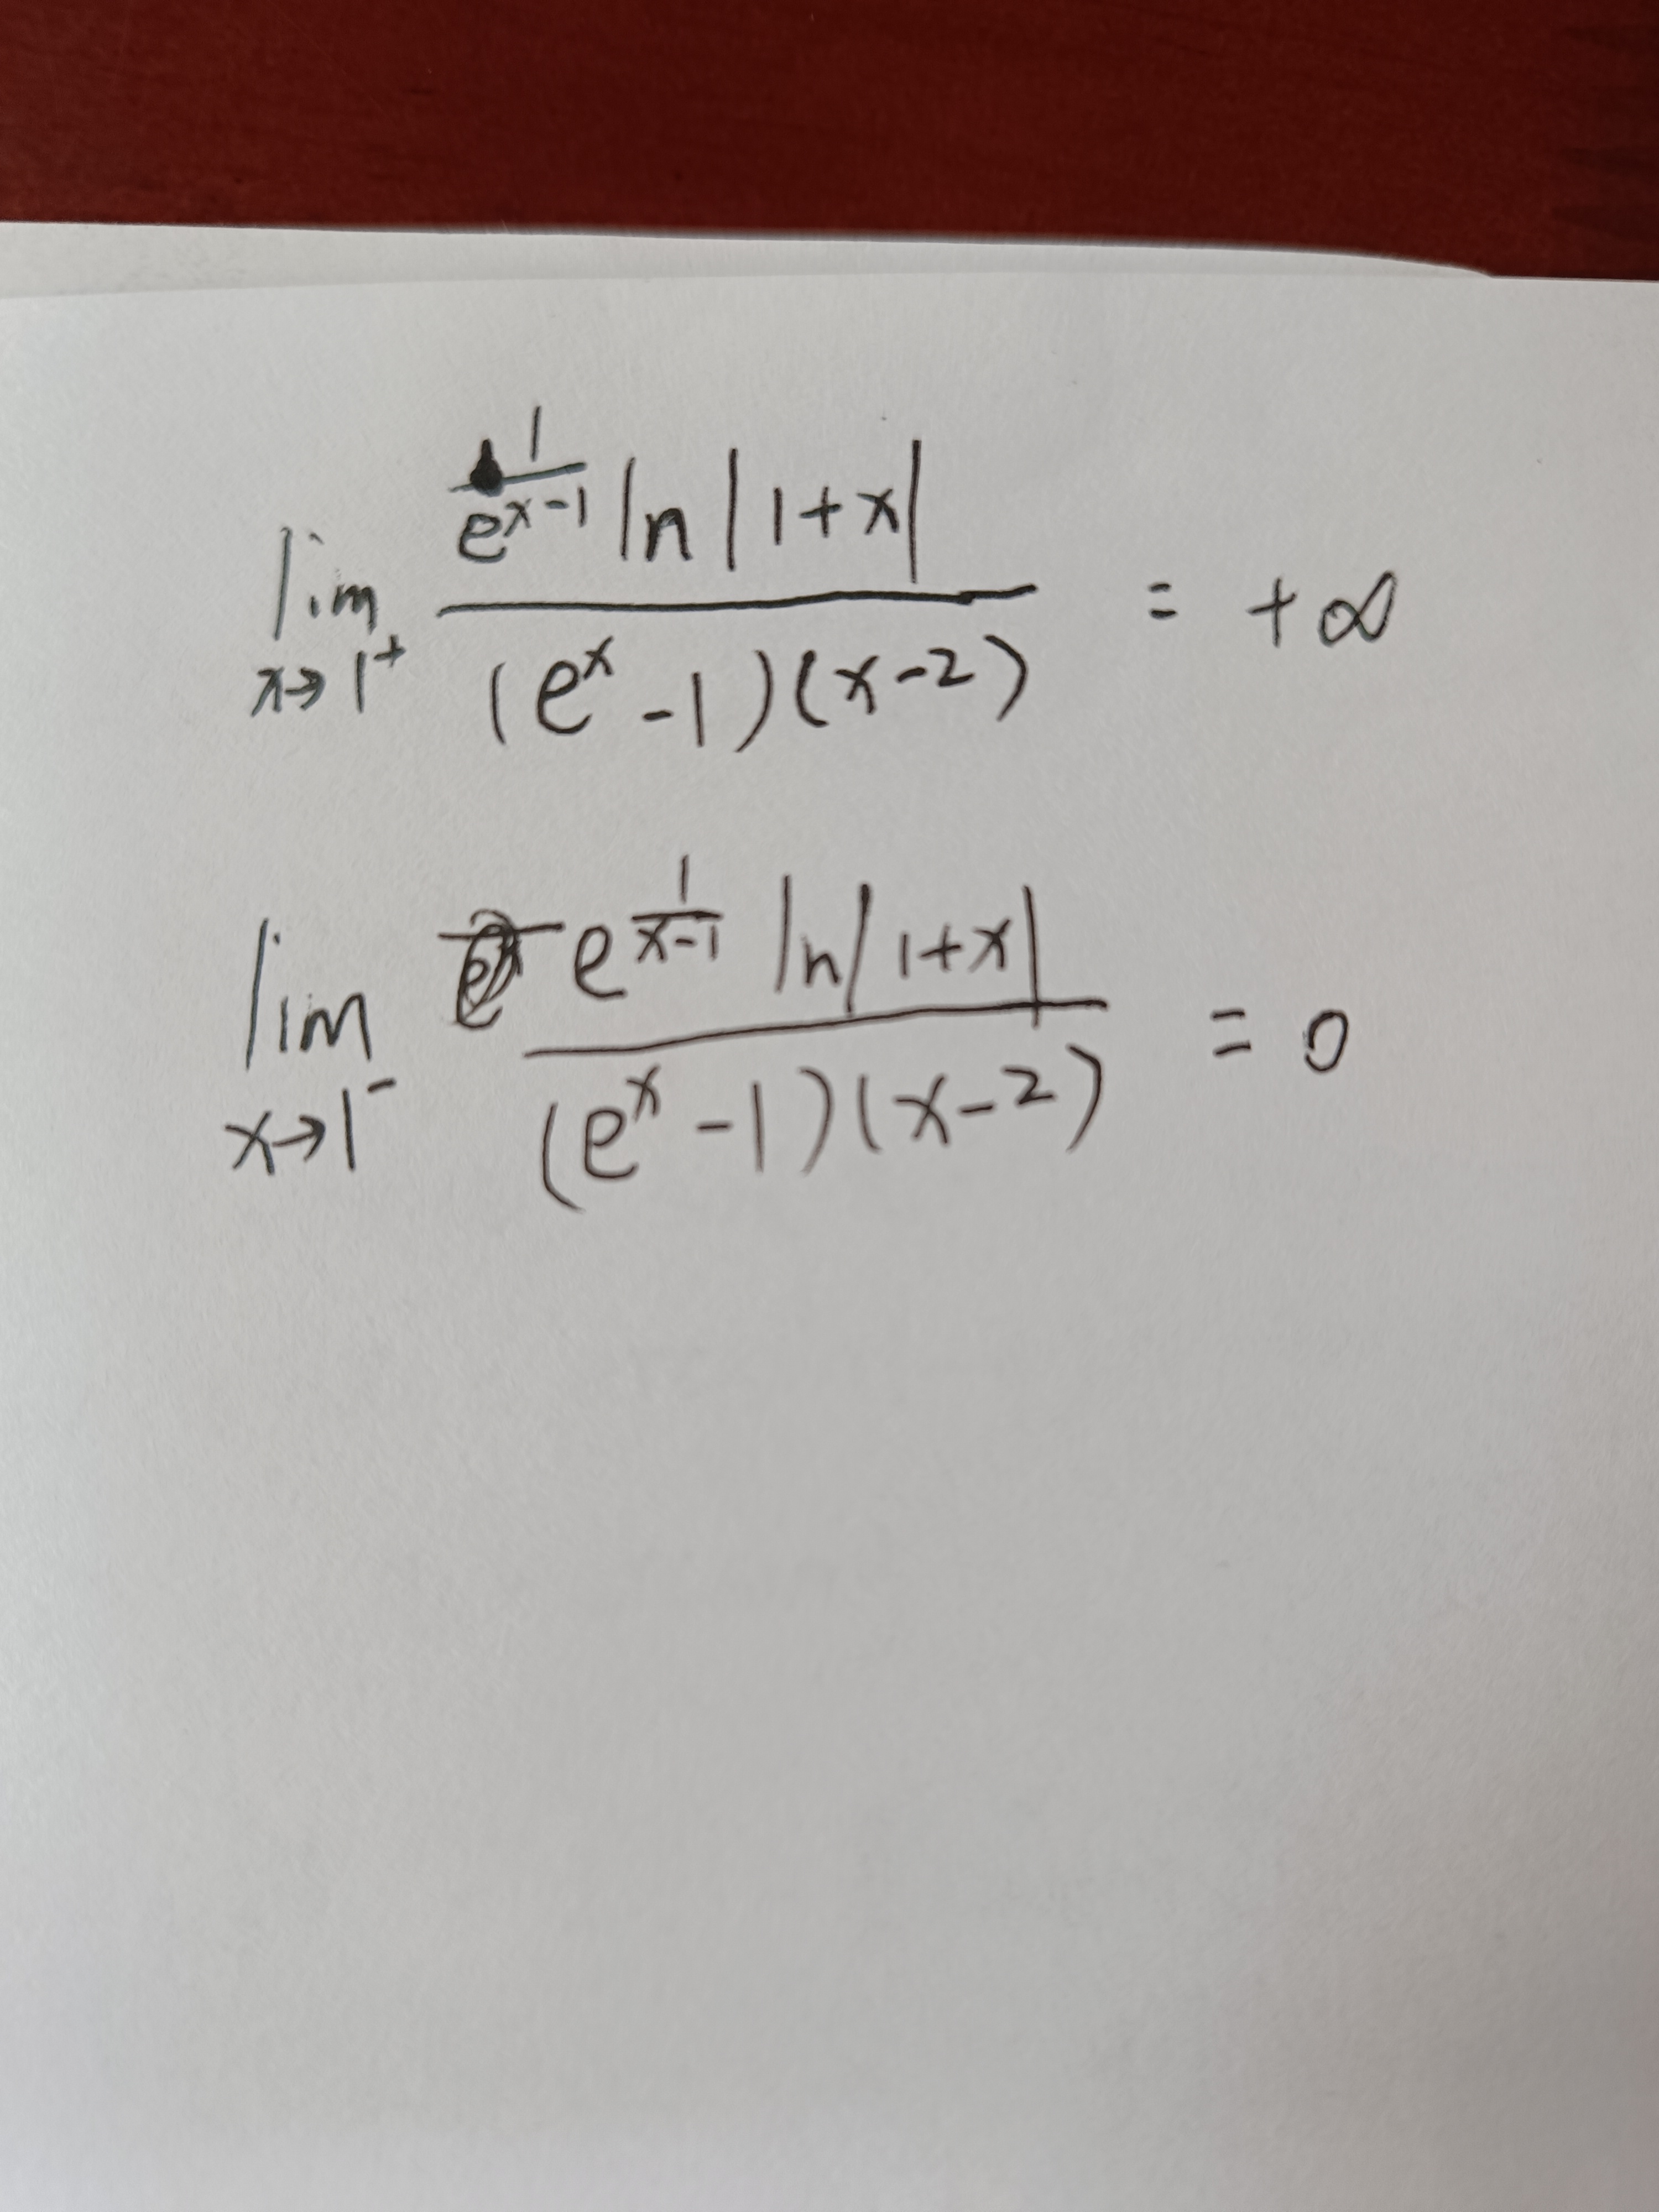 lim_{x→1^+} \frac{\frac{1}{e^{x-1}} ln|1+x|}{(e^x-1)(x-2)} = +∞
lim_{x→1^-} \frac{e^{\frac{1}{x-1}} ln|1+x|}{(e^x-1)(x-2)} = 0